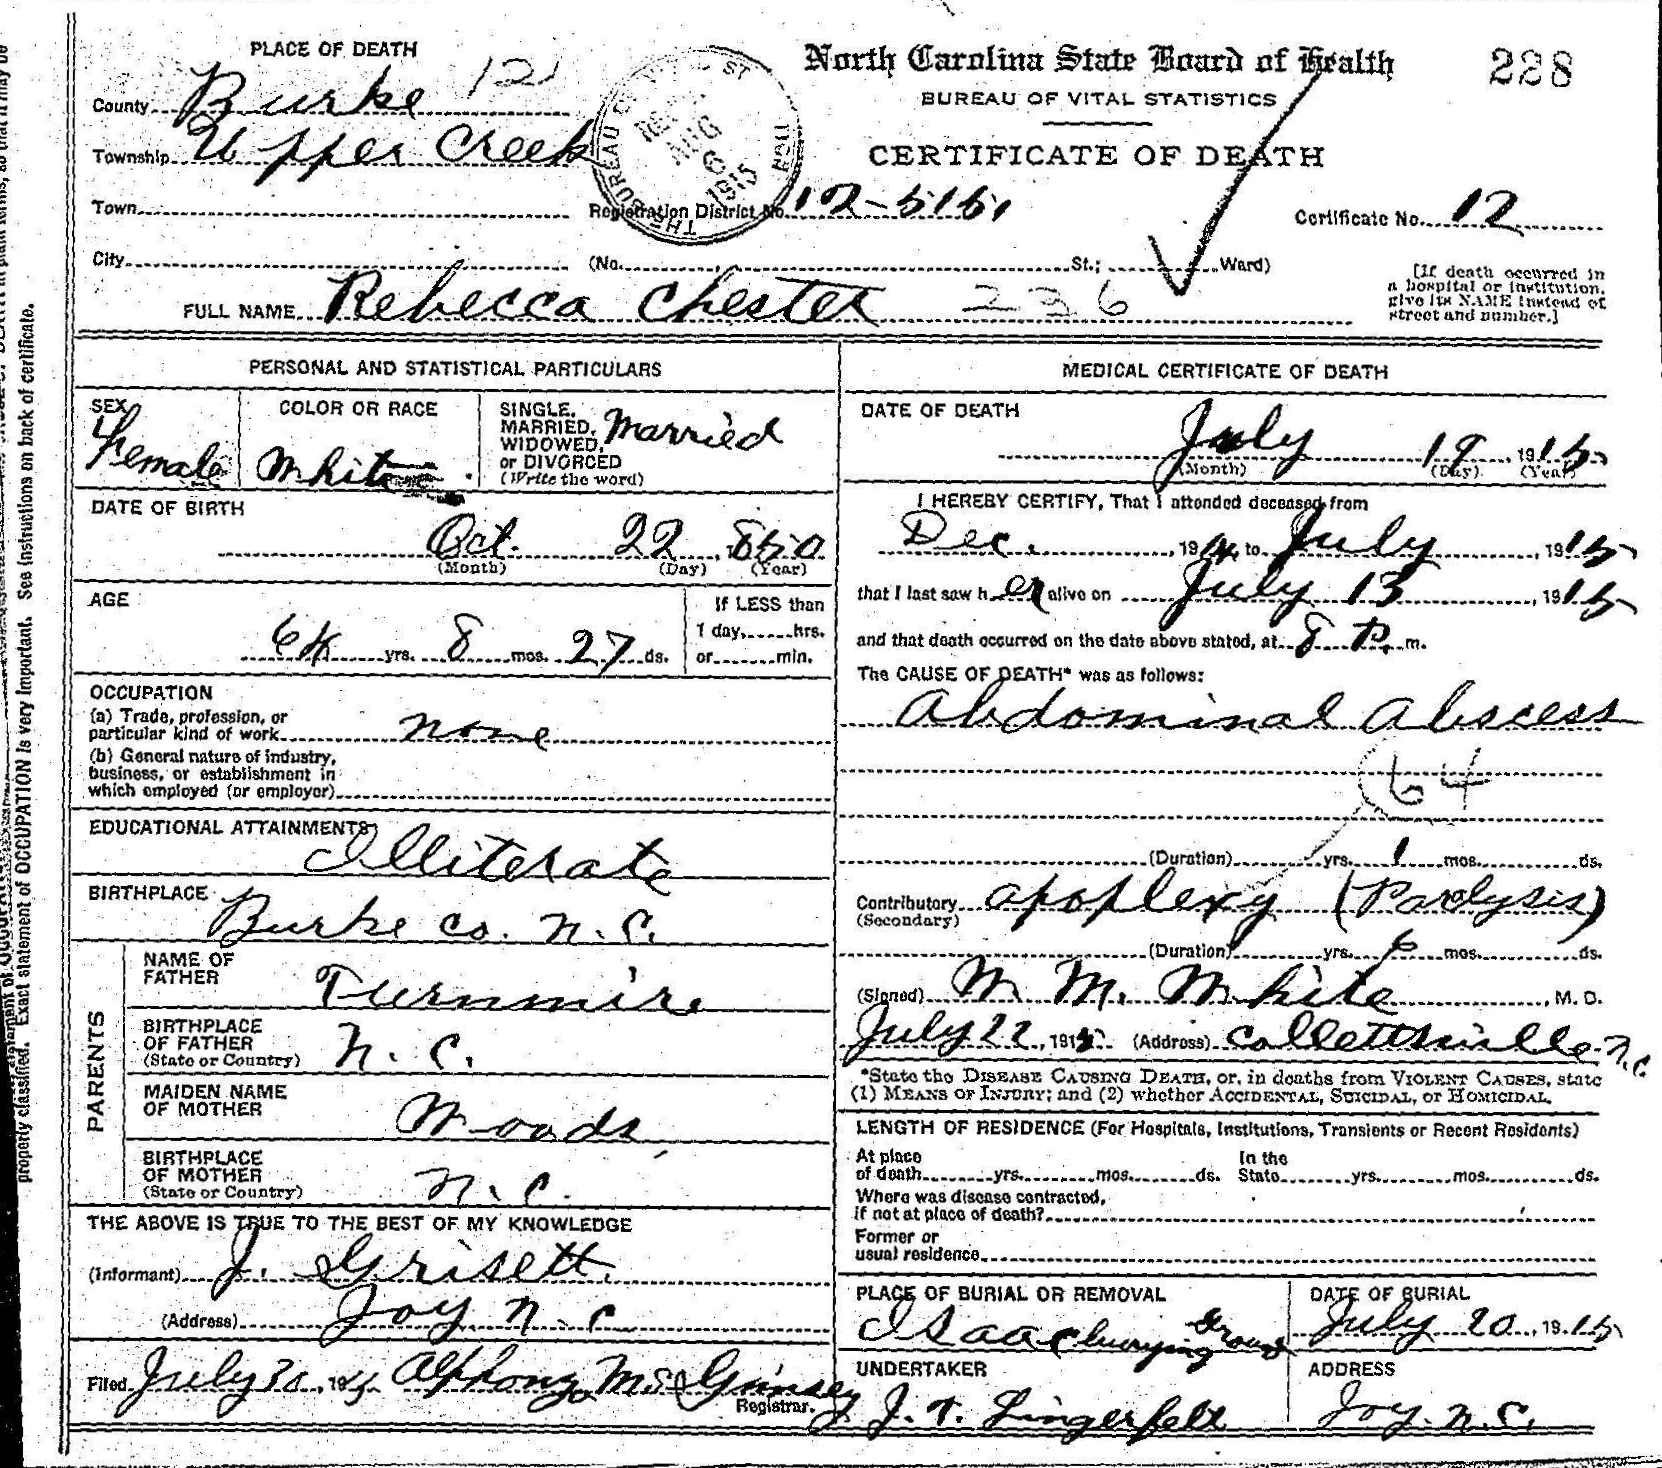 PLACE OF DEATH
North Carolina State Board of Health
228
BUREAU OF VITAL STATISTICS
CERTIFICATE OF DEATH
County Burke 121
Township Upper Creek
THE BUREAU OF VITAL ST
AUG 6 1915
Town
Registration District No. 12-5151
Certificate No. 12
City (No. St.; Ward)
[If death occurred in
a hospital or institution,
give its NAME instead of
street and number.]
FULL NAME Rebecca Chester 236
PERSONAL AND STATISTICAL PARTICULARS
SEX
Female
COLOR OR RACE
White
SINGLE,
MARRIED,
WIDOWED,
or DIVORCED
(Write the word)
Married
DATE OF BIRTH
Oct. 22, 1850
(Month) (Day) (Year)
AGE
64 yrs. 8 mos. 27 ds.
If LESS than
1 day, hrs.
or min.
OCCUPATION
(a) Trade, profession, or
particular kind of work none
(b) General nature of industry,
business, or establishment in
which employed (or employer)
EDUCATIONAL ATTAINMENTS
Illiterate
BIRTHPLACE
Burke Co. N.C.
PARENTS
NAME OF
FATHER
Turnmire
BIRTHPLACE
OF FATHER
(State or Country)
N. C.
MAIDEN NAME
OF MOTHER
Woods
BIRTHPLACE
OF MOTHER
(State or Country)
N. C.
THE ABOVE IS TRUE TO THE BEST OF MY KNOWLEDGE
(Informant) J. Grisett
(Address) Joy N. C
Filed July 30, 1915 Alphonzo McGimsey
Registrar.
MEDICAL CERTIFICATE OF DEATH
DATE OF DEATH
July 19, 1915
(Month) (Day) (Year)
I HEREBY CERTIFY, That I attended deceased from
Dec. , 1914, to July , 1915
that I last saw her alive on July 13 , 1915
and that death occurred on the date above stated, at 8 P. m.
The CAUSE OF DEATH* was as follows:
Abdominal Abscess
64
(Duration) yrs. 1 mos. ds.
Contributory apoplexy (Paralysis)
(Secondary)
(Duration) yrs. 6 mos. ds.
(Signed) W. M. White , M. D.
July 22, 1915 (Address) Collettsville N.C
*State the DISEASE CAUSING DEATH, or, in deaths from VIOLENT CAUSES, state
(1) MEANS OF INJURY; and (2) whether ACCIDENTAL, SUICIDAL, OR HOMICIDAL.
LENGTH OF RESIDENCE (For Hospitals, Institutions, Transients or Recent Residents)
At place
of death yrs. mos. ds.
In the
State yrs. mos. ds.
Where was disease contracted,
if not at place of death?
Former or
usual residence
PLACE OF BURIAL OR REMOVAL
Isaac burying ground
DATE OF BURIAL
July 20, 1915
UNDERTAKER
J. T. Lingerfelt
ADDRESS
Joy. N.C.
properly classified. Exact statement of OCCUPATION is very important. See instructions on back of certificate.